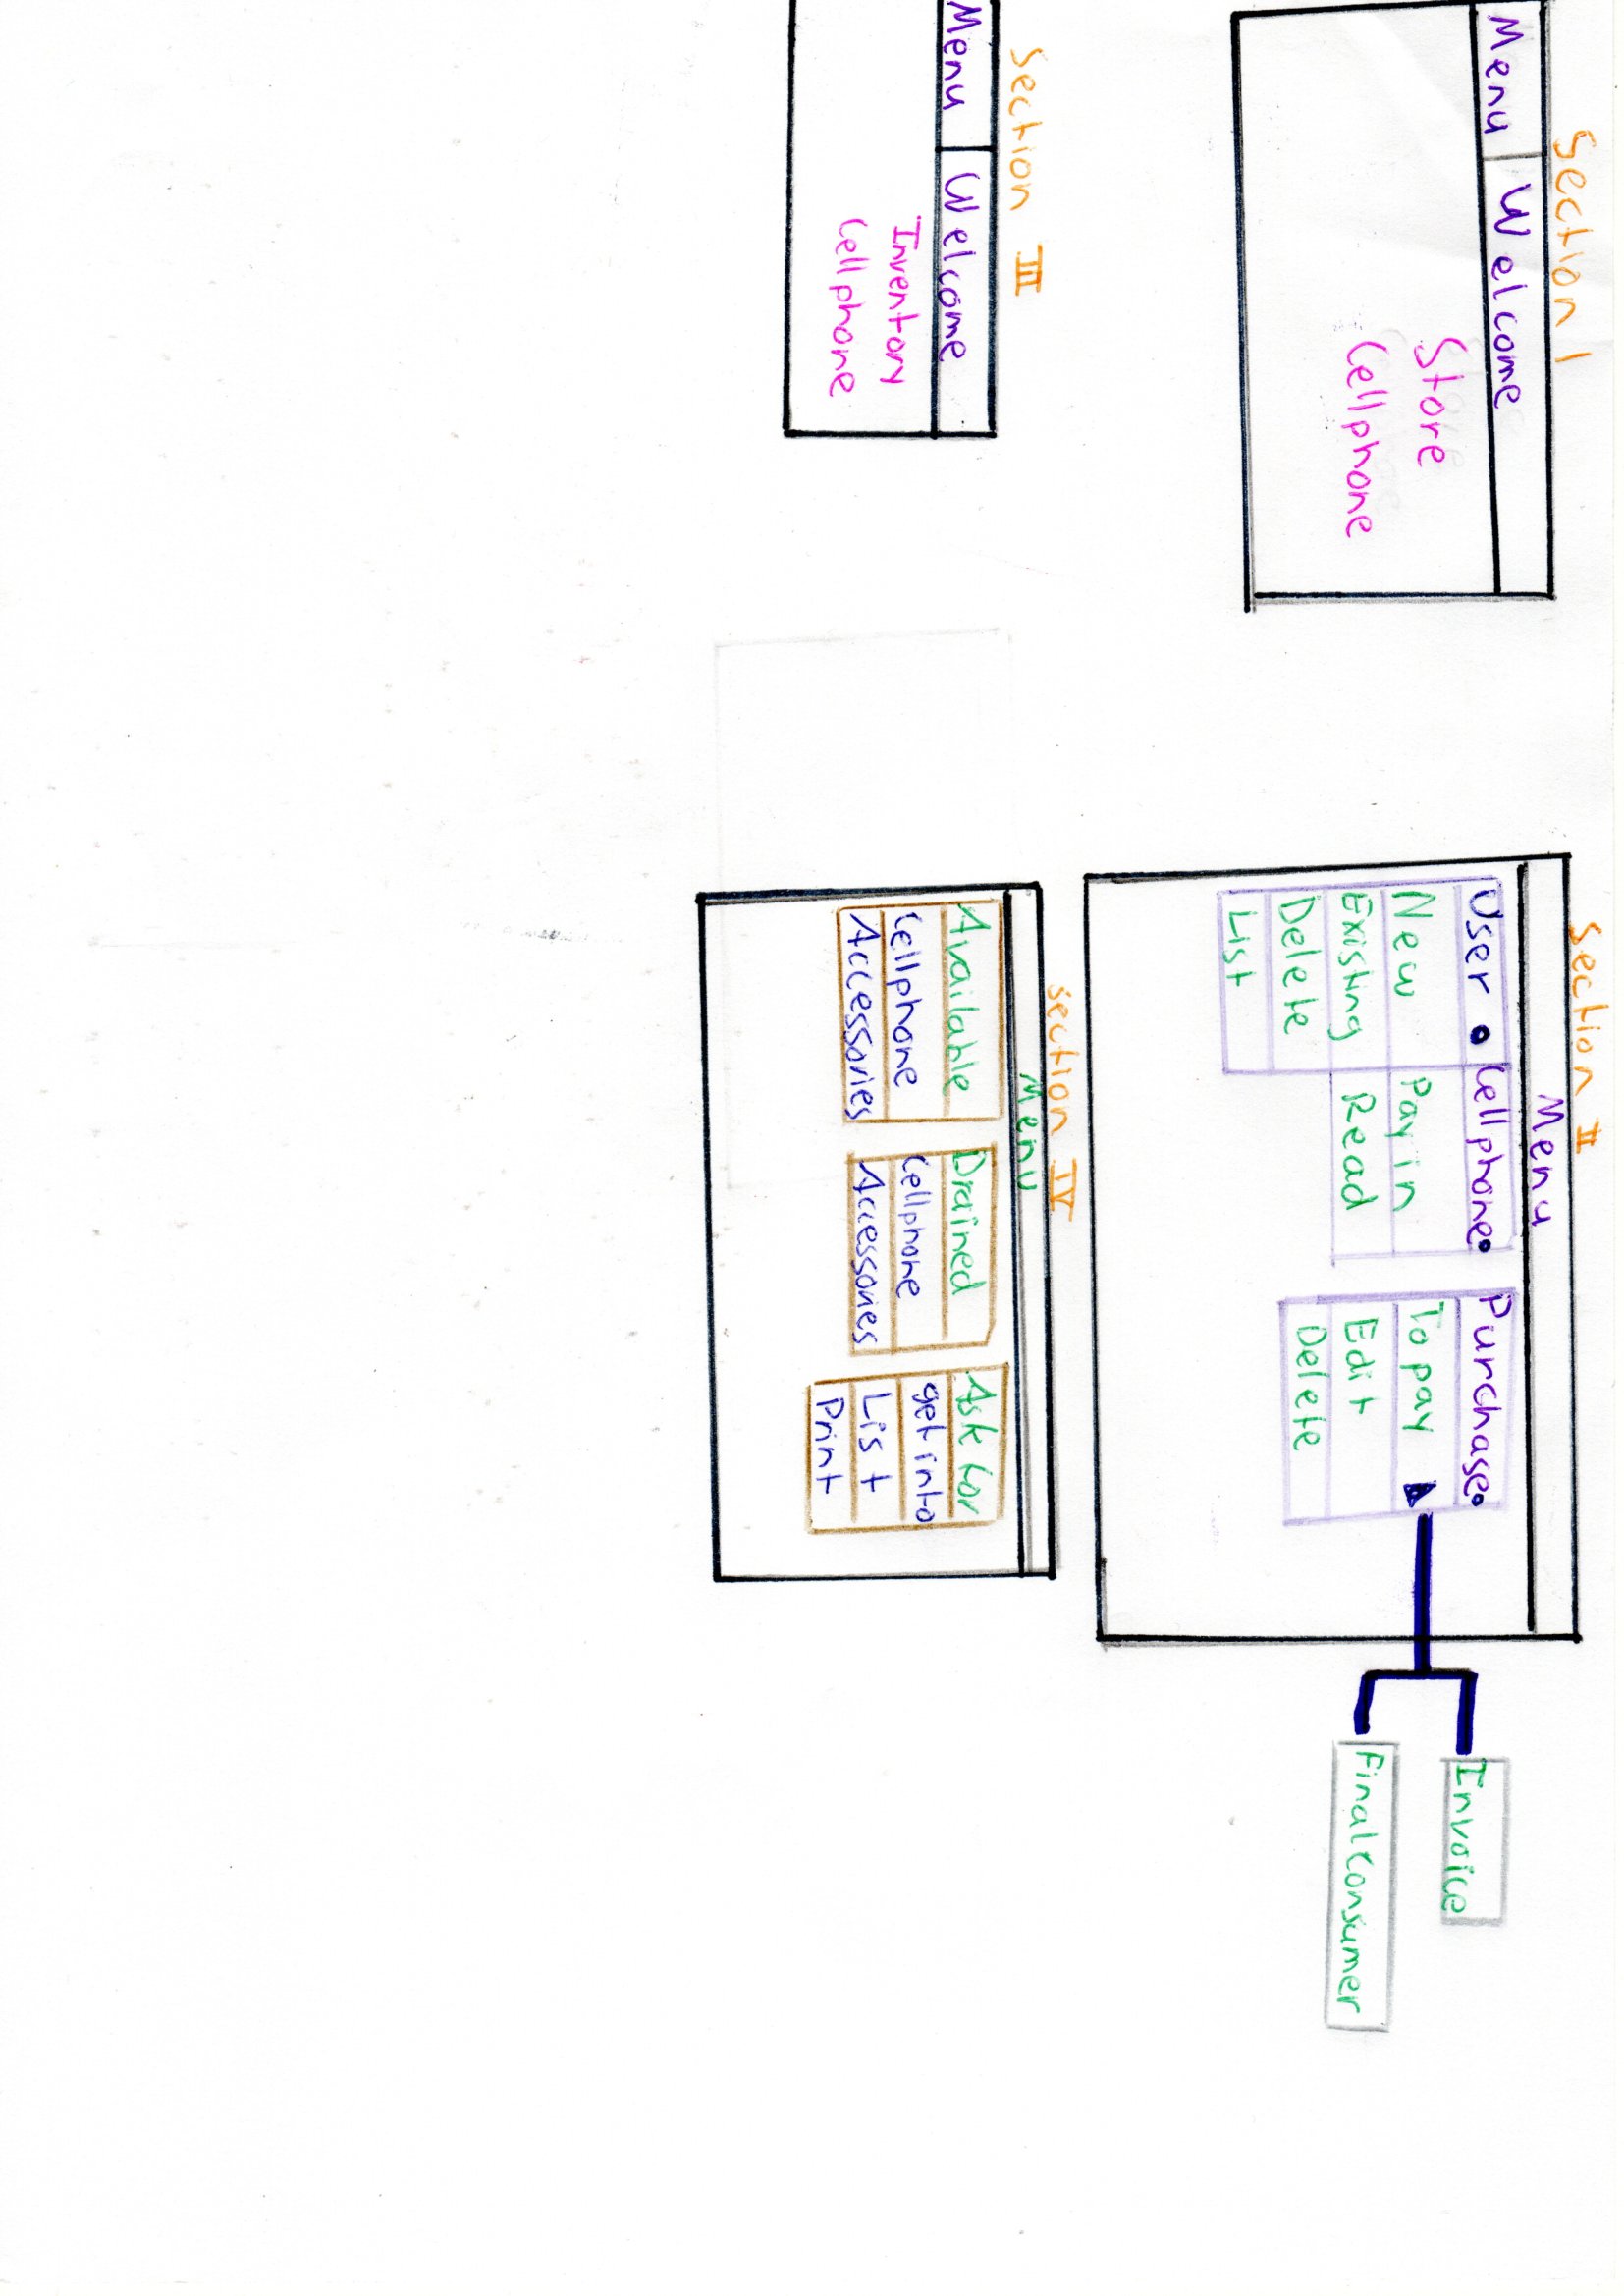 Section I
Menu Welcome
Store
Cellphone
Section II
Menu
User
New
Existing
Delete
List
Cellphone
Pay in
Read
Purchase
To pay
Edit
Delete
Invoice
Final Consumer
Section III
Menu Welcome
Inventory
Cellphone
section IV
Menu
Available
Cellphone
Accessories
Drained
Cellphone
Accessories
Ask for
get into
List
Print